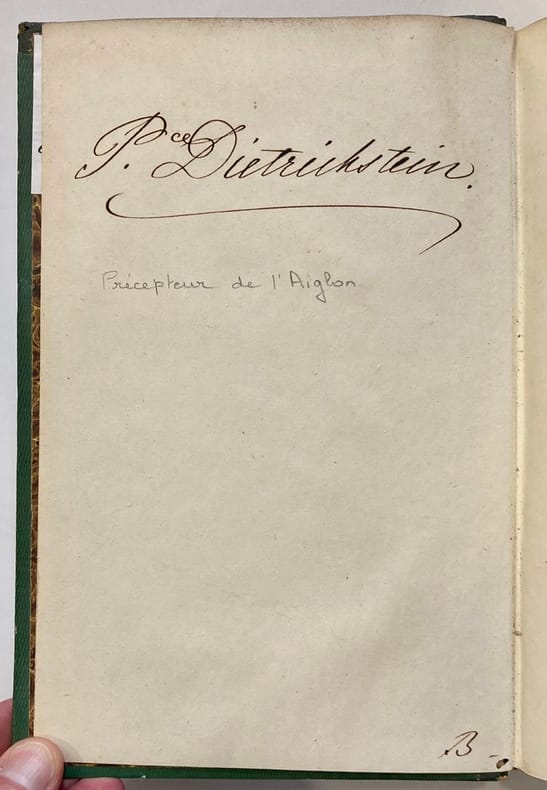 P.ce Dietrichstein.
Précepteur de l'Aiglon
B